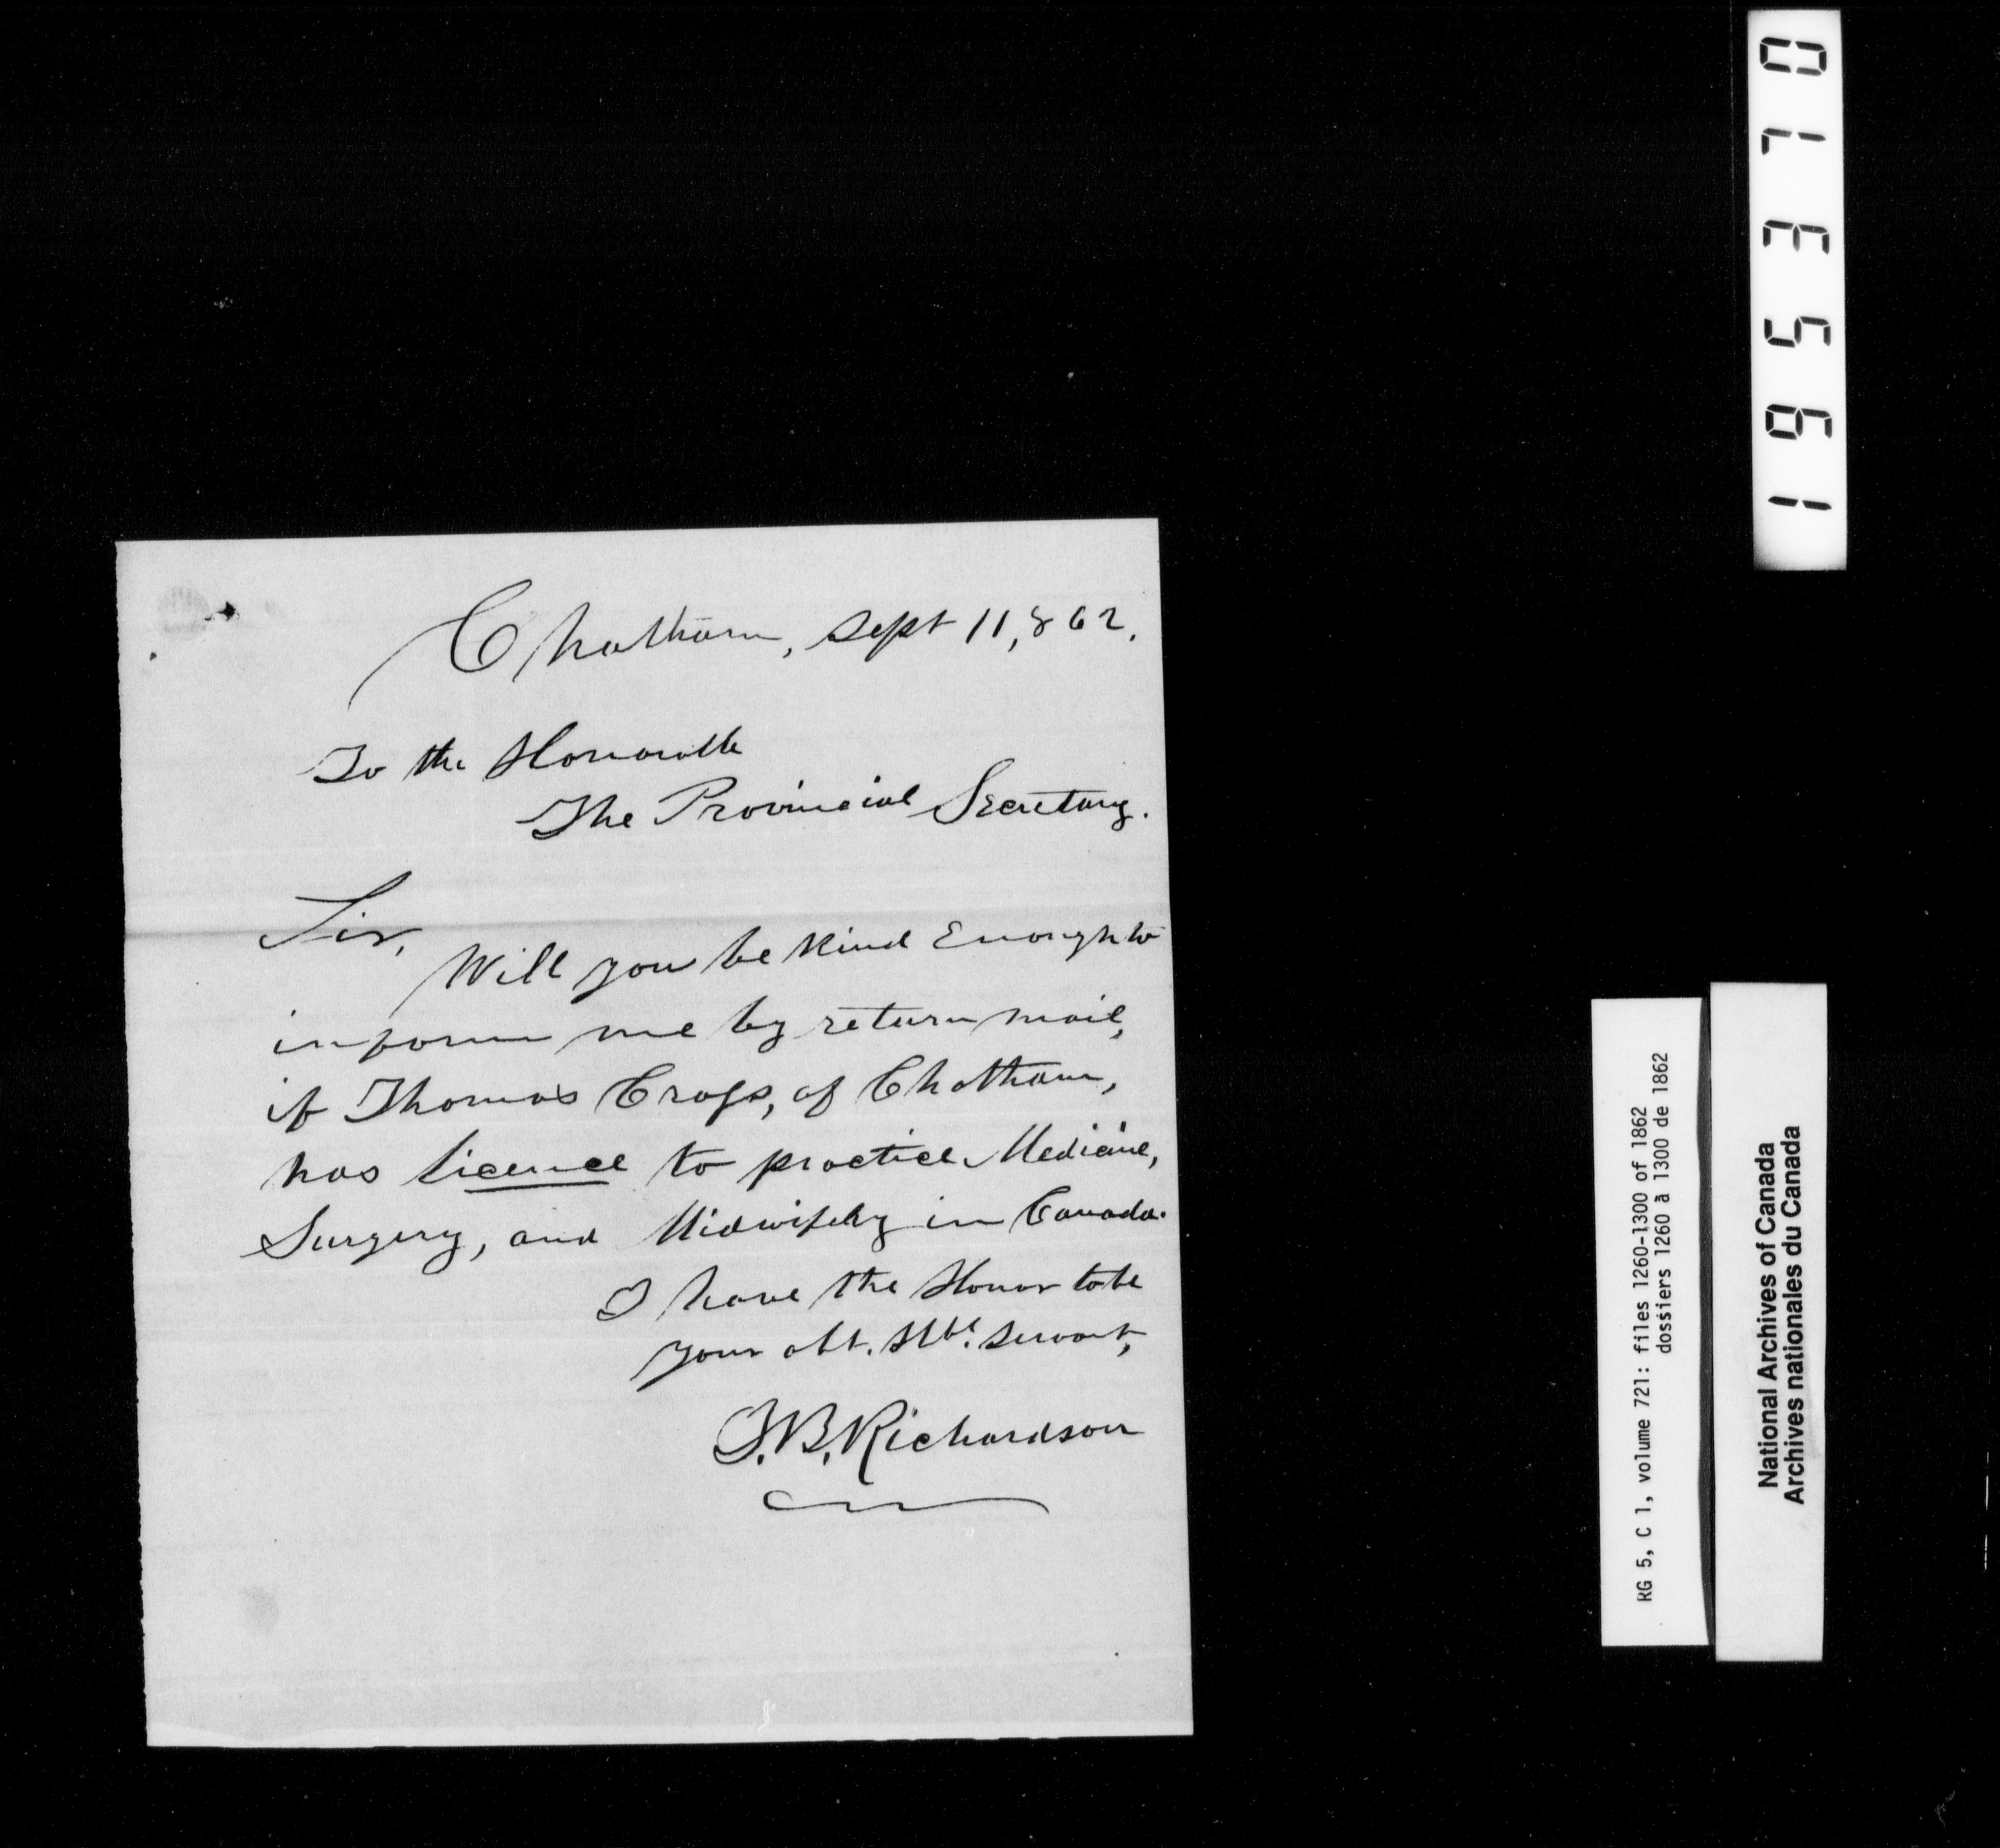 Chatham, Sept 11, 862.
To the Honorable
The Provincial Secretary.
Sir,
Will you be kind Enough to
inform me by return mail,
if Thomas Cross, of Chatham,
has licence to practice Medicine,
Surgery, and Midwifery in Canada.
I have the Honor to be
your obt. Hbl. Servant,
T.B. Richardson
RG 5, C 1, volume 721: files 1260-1300 of 1862
dossiers 1260 à 1300 de 1862
National Archives of Canada
Archives nationales du Canada
195310